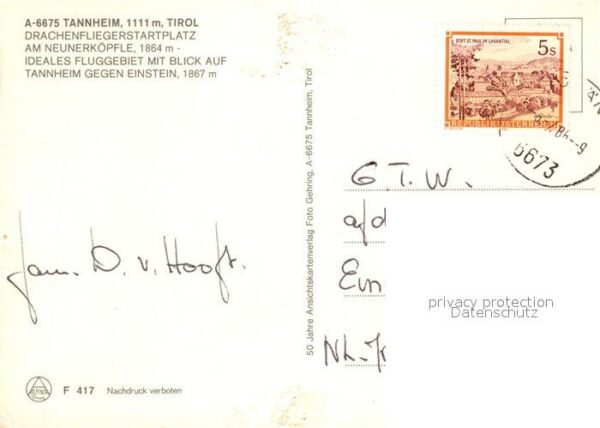 A-6675 TANNHEIM, 1111 m, TIROL
DRACHENFLIEGERSTARTPLATZ
AM NEUNERKÖPFLE, 1864 m -
IDEALES FLUGGEBIET MIT BLICK AUF
TANNHEIM GEGEN EINSTEIN, 1867 m
STIFT ST. PAUL IM LAVANTTAL
5s
REPUBLIK ÖSTERREICH
6673
50 Jahre Ansichtskartenverlag Foto Gehring, A-6675 Tannheim, Tirol
G.T.W.
afd
Ein
Fam. D. v. Hooft.
privacy protection
Datenschutz
F 417 Nachdruck verboten